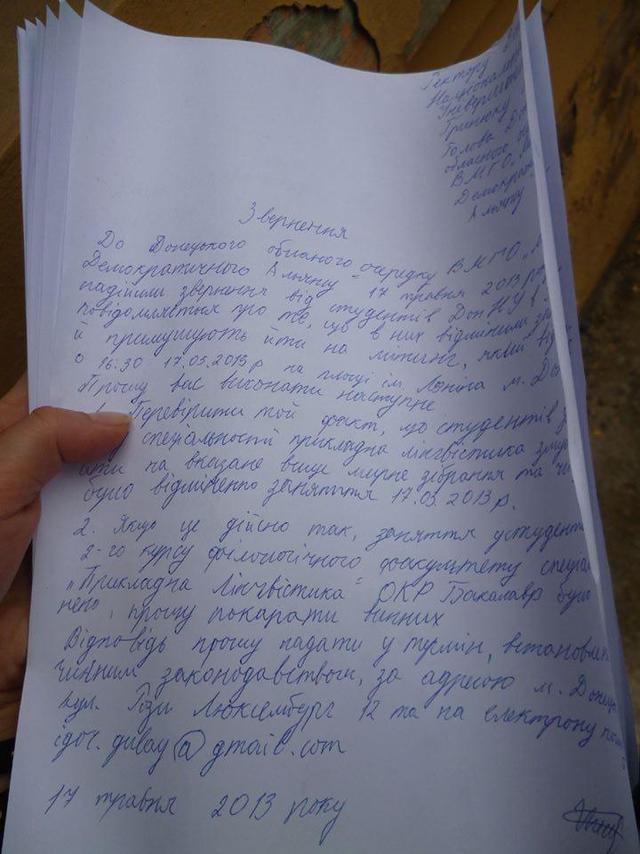 Ректору
Національ
Універси
Гринюку
Голова Дон
обласного
ВМГО
Демократ
Альянсу
Звернення
До Донецького обласного осередку ВМГО
Демократичного Альянсу" 17 травня 2013
надійшли звернення від студентів ДонНУ в
повідомляється про те, що в них відмінили
й примушують йти на мітинг, який
о 16:30 17.05.2013р на площі ім. Леніна м. Дон
Прошу вас виконати наступне
1. Перевірити той факт, що студентів
спеціальності прикладна лінгвістика
йти на вказане вище мирне зібрання та
було відмінено заняття 17.05.2013р.
2. Якщо це дійсно так, заняття у студент
2-го курсу філологічного факультету спеціа
"Прикладна лінгвістика" ОКР Бакалавр було
нено, прошу покарати винних
Відповідь прошу надати у термін, встановлен
чинним законодавством, за адресою м. Донець
вул. Рози Люксембург 12 та на електрону
17 травня 2013 року